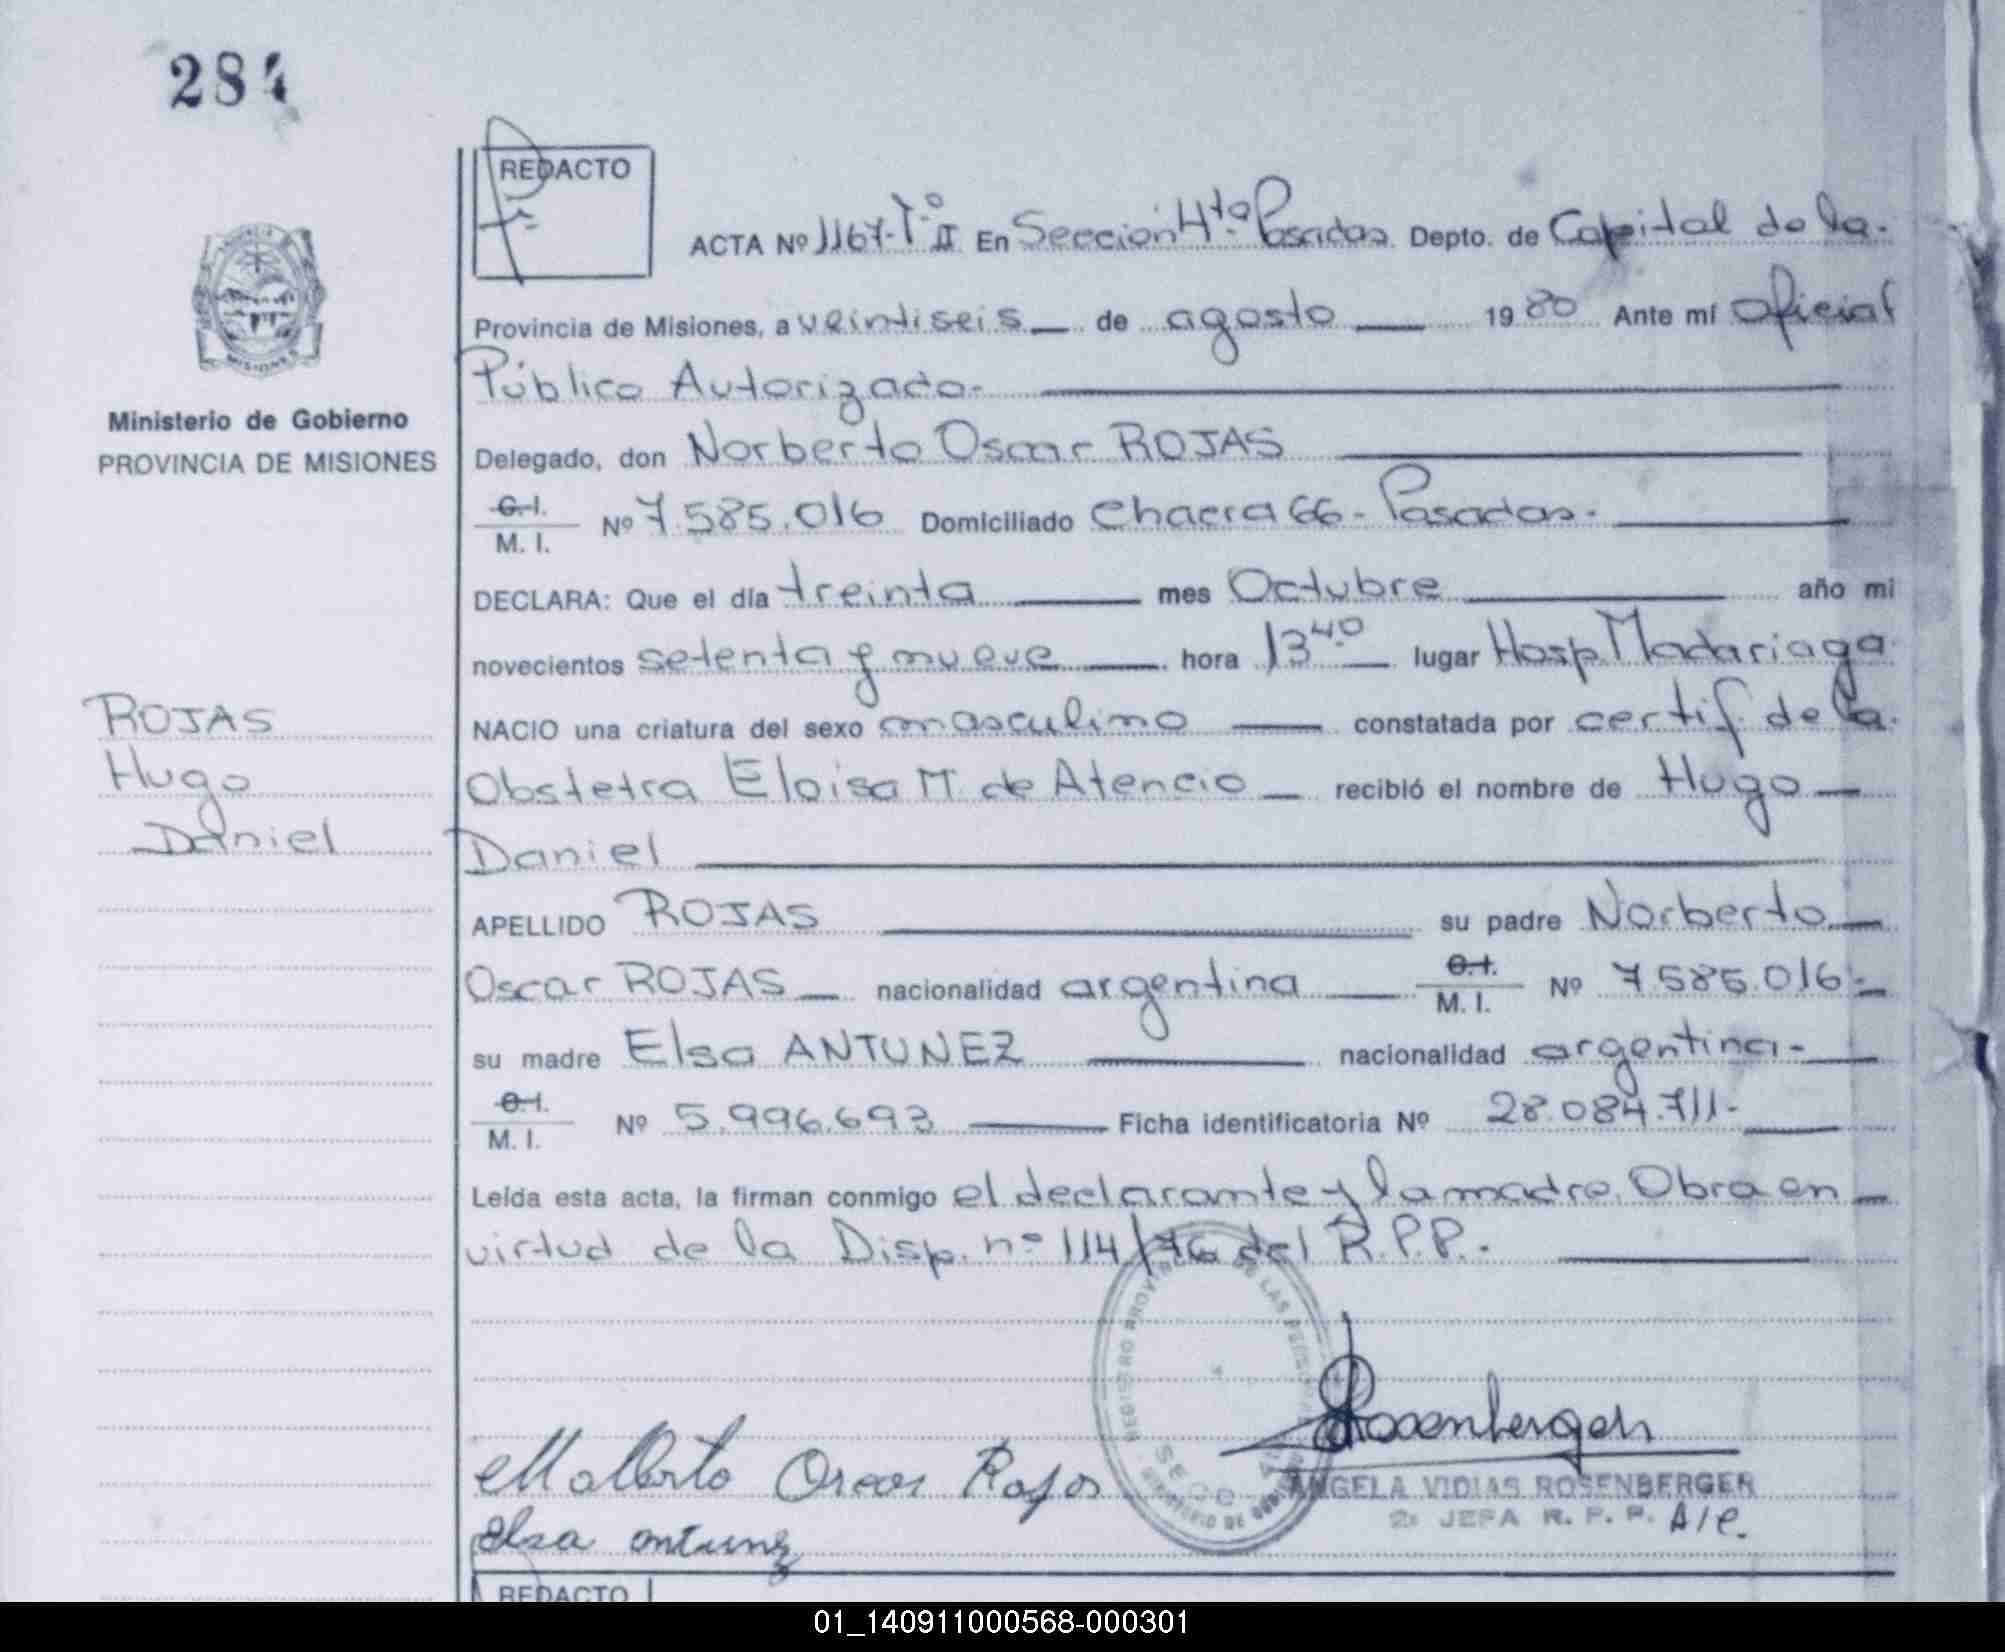 284
REDACTO
ACTA Nº 1167-Tº II En Sección 4ta Posadas Depto. de Capital de la.
Provincia de Misiones, a veintiseis de agosto 1980 Ante mí Oficial
Público Autorizado.
Ministerio de Gobierno
PROVINCIA DE MISIONES
Delegado, don Norberto Oscar ROJAS
C.I.
M. I. Nº 7.585.016 Domiciliado Chacra 66 - Posadas.
DECLARA: Que el día treinta mes Octubre año mi
novecientos setenta y nueve hora 13 40 lugar Hosp. Madariaga
ROJAS
Hugo
Daniel
NACIO una criatura del sexo masculino constatada por certif. de la.
Obstetra Eloisa M. de Atencio recibió el nombre de Hugo
Daniel
APELLIDO ROJAS su padre Norberto
Oscar ROJAS nacionalidad argentina C.I. M. I. Nº 7.585.016.
su madre Elsa ANTUNEZ nacionalidad argentina.
C.I.
M. I. Nº 5.996.693 Ficha identificatoria Nº 28.084.711.
Leída esta acta, la firman conmigo el declarante y la madre. Obra en
virtud de la Disp. nº 114/76 del R.P.P.
REGISTRO PROVINCIAL DE LAS PERSONAS
MINISTERIO DE GOBIERNO
Rosenberger
ANGELA VIDIAS ROSENBERGER
2a JEFA R. P. P. A/C.
Norberto Oscar Rojas
Elsa Antunez
REDACTO
01_140911000568-000301